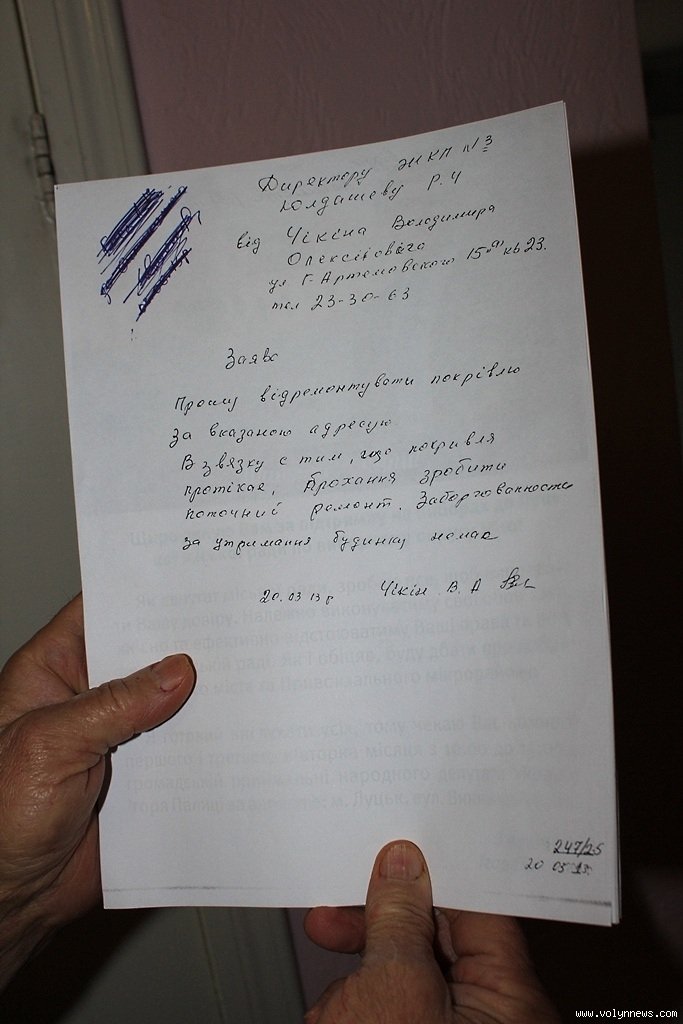 Директору ЖКП №3
Юлдашеву Р.Ч
від Чікіна Володимира
Олексійовіча
ул Г-Артемовского 15 кв 23.
тел 23-30-63
Заява
Прошу відремонтувати покрівлю
за вказаною адресую
В звязку с тим, що покривля
протікає, Прохання зробити
поточний ремонт. Заборгованности
за утримання будинку немає
20.03 13г Чікін В. А
247/25
20 03 13.
www.volynnews.com